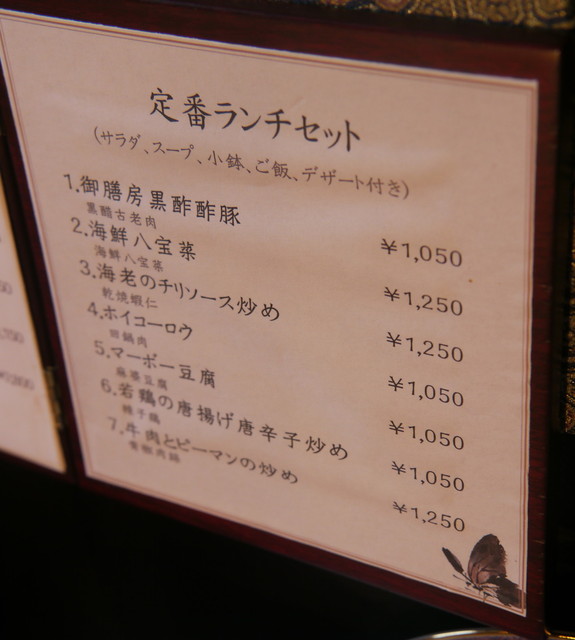 定番ランチセット
(サラダ、スープ、小鉢、ご飯、デザート付き)
1.御膳房黒酢酢豚 ¥1,050
黒醋古老肉
2.海鮮八宝菜 ¥1,250
海鮮八宝菜
3.海老のチリソース炒め ¥1,250
乾焼蝦仁
4.ホイコーロウ ¥1,050
回鍋肉
5.マーボー豆腐 ¥1,050
麻婆豆腐
6.若鶏の唐揚げ唐辛子炒め ¥1,050
辣子鶏
7.牛肉とピーマンの炒め ¥1,250
青椒肉絲